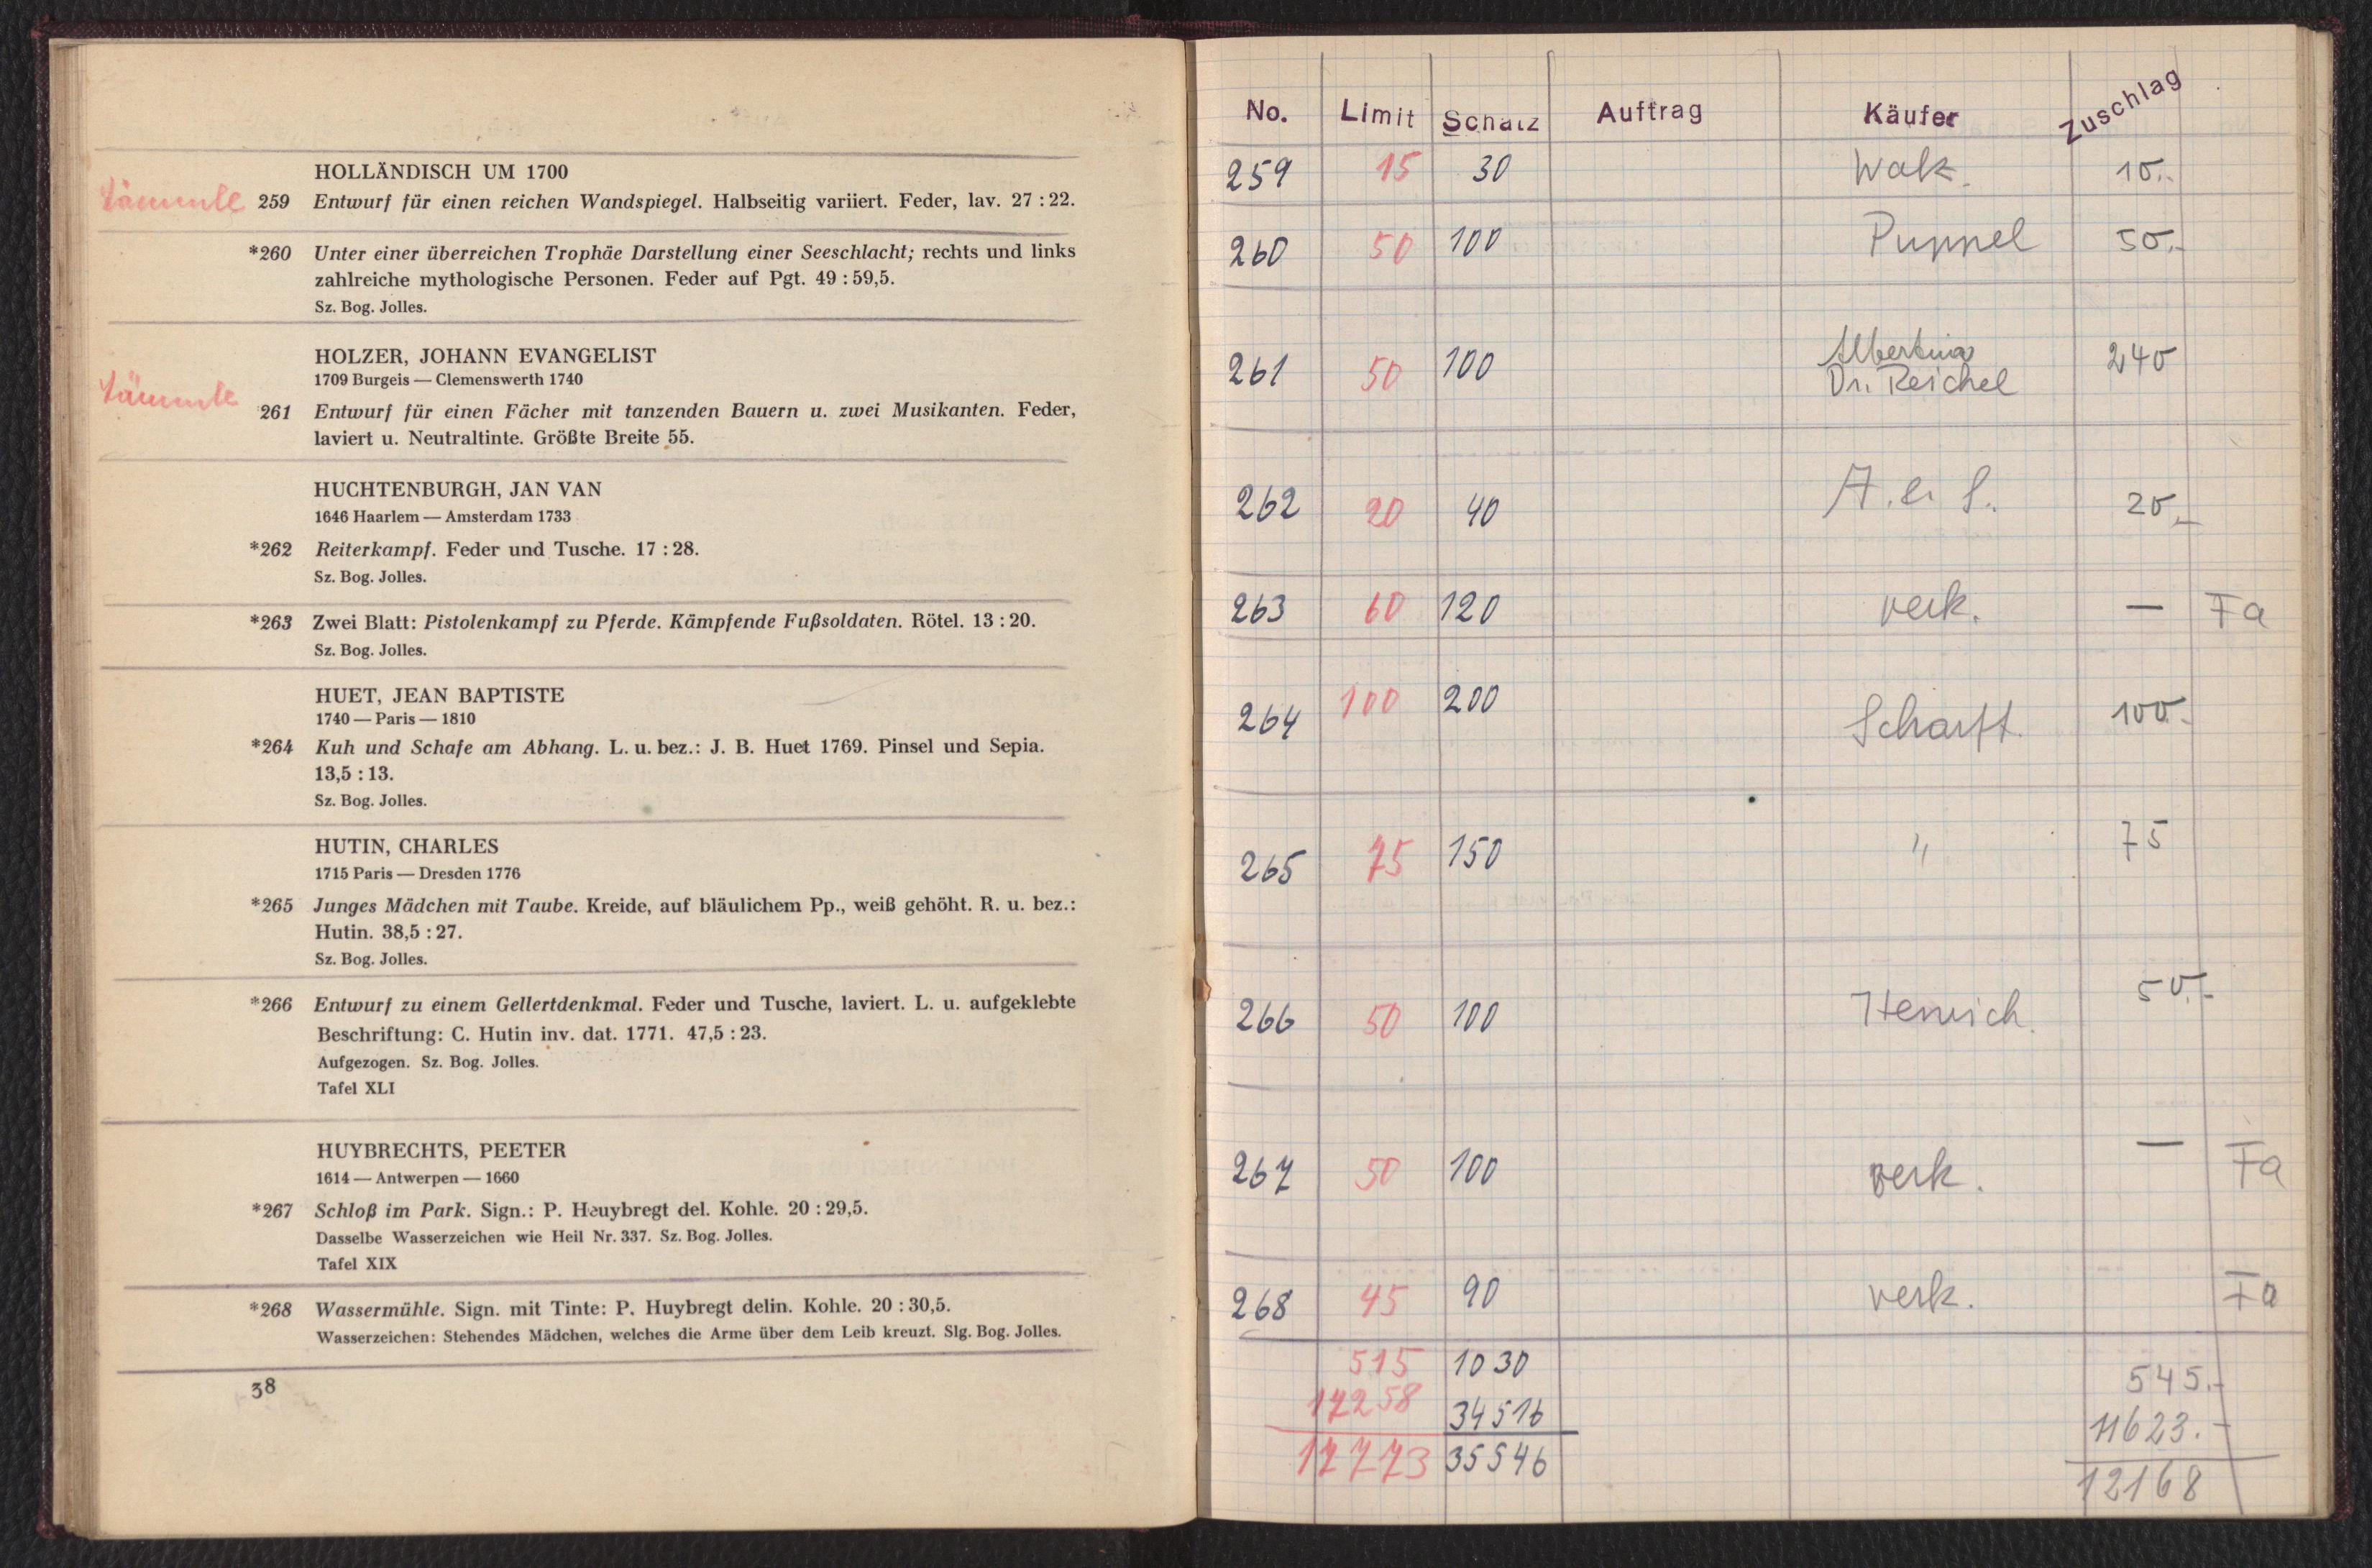 HOLLÄNDISCH UM 1700
Lämmle 259 Entwurf für einen reichen Wandspiegel. Halbseitig variiert. Feder, lav. 27 : 22.
*260 Unter einer überreichen Trophäe Darstellung einer Seeschlacht; rechts und links
zahlreiche mythologische Personen. Feder auf Pgt. 49 : 59,5.
Sz. Bog. Jolles.
HOLZER, JOHANN EVANGELIST
1709 Burgeis — Clemenswerth 1740
Lämmle
261 Entwurf für einen Fächer mit tanzenden Bauern u. zwei Musikanten. Feder,
laviert u. Neutraltinte. Größte Breite 55.
HUCHTENBURGH, JAN VAN
1646 Haarlem — Amsterdam 1733
*262 Reiterkampf. Feder und Tusche. 17 : 28.
Sz. Bog. Jolles.
*263 Zwei Blatt: Pistolenkampf zu Pferde. Kämpfende Fußsoldaten. Rötel. 13 : 20.
Sz. Bog. Jolles.
HUET, JEAN BAPTISTE
1740 — Paris — 1810
*264 Kuh und Schafe am Abhang. L. u. bez.: J. B. Huet 1769. Pinsel und Sepia.
13,5 : 13.
Sz. Bog. Jolles.
HUTIN, CHARLES
1715 Paris — Dresden 1776
*265 Junges Mädchen mit Taube. Kreide, auf bläulichem Pp., weiß gehöht. R. u. bez.:
Hutin. 38,5 : 27.
Sz. Bog. Jolles.
*266 Entwurf zu einem Gellertdenkmal. Feder und Tusche, laviert. L. u. aufgeklebte
Beschriftung: C. Hutin inv. dat. 1771. 47,5 : 23.
Aufgezogen. Sz. Bog. Jolles.
Tafel XLI
HUYBRECHTS, PEETER
1614 — Antwerpen — 1660
*267 Schloß im Park. Sign.: P. Heuybregt del. Kohle. 20 : 29,5.
Dasselbe Wasserzeichen wie Heil Nr. 337. Sz. Bog. Jolles.
Tafel XIX
*268 Wassermühle. Sign. mit Tinte: P. Huybregt delin. Kohle. 20 : 30,5.
Wasserzeichen: Stehendes Mädchen, welches die Arme über dem Leib kreuzt. Slg. Bog. Jolles.
38
No. Limit Schatz Auftrag Käufer Zuschlag
259 15 30 Walz. 10.-
260 50 100 Puppel 50.-
261 50 100 Albertina 240
Dr. Reichel
262 20 40 20.-
263 60 120 verk. — Fa
264 100 200 Scharff. 100.-
265 75 150 " 75
266 50 100 50.-
267 50 100 verk. — Fa
268 45 90 verk. Fa
515 1030 545.-
17258 34516 11623.-
17773 35546 12168